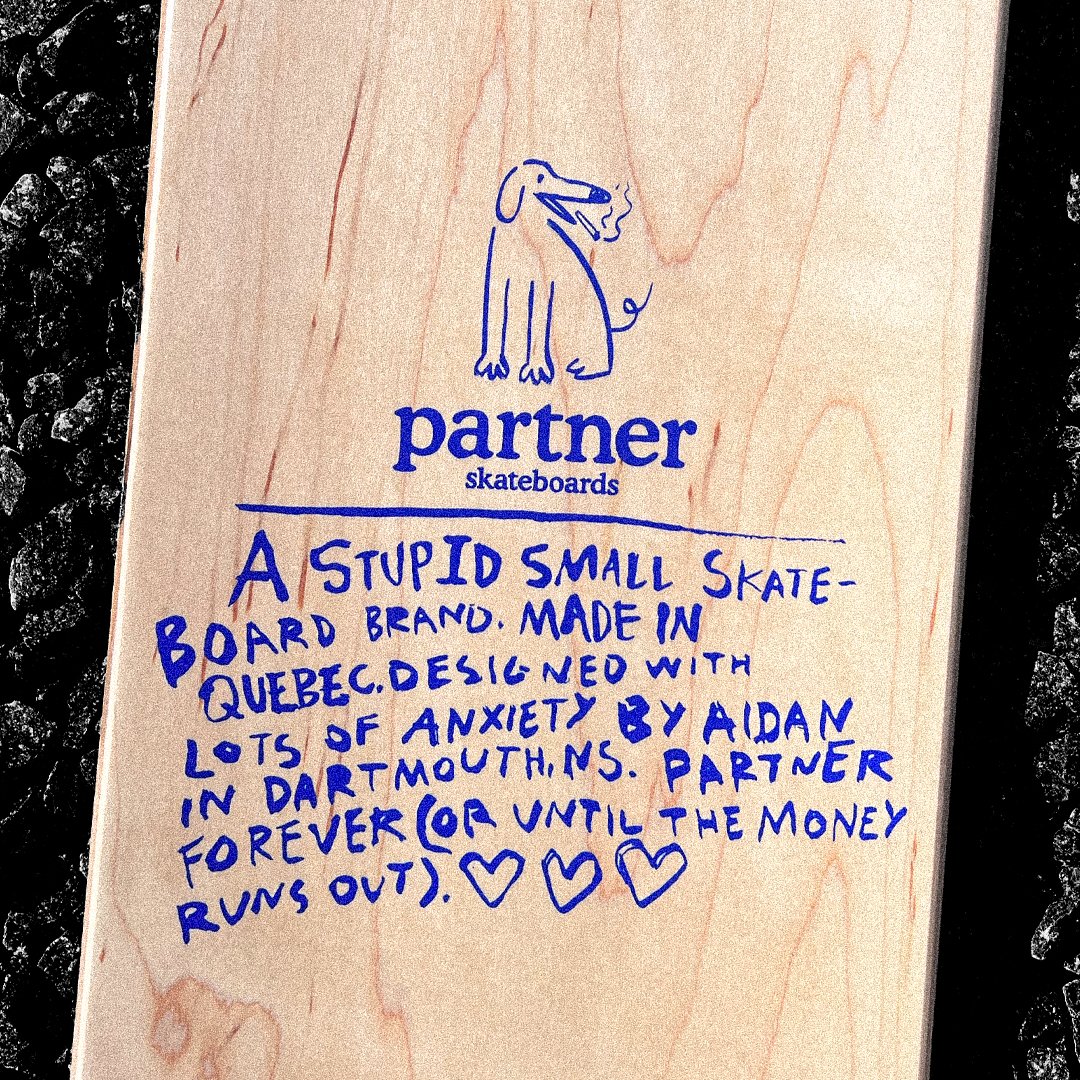 partner
skateboards
A STUPID SMALL SKATE-
BOARD BRAND. MADE IN
QUEBEC. DESIGNED WITH
LOTS OF ANXIETY BY AIDAN
IN DARTMOUTH, NS. PARTNER
FOREVER (OR UNTIL THE MONEY
RUNS OUT). ♡ ♡ ♡